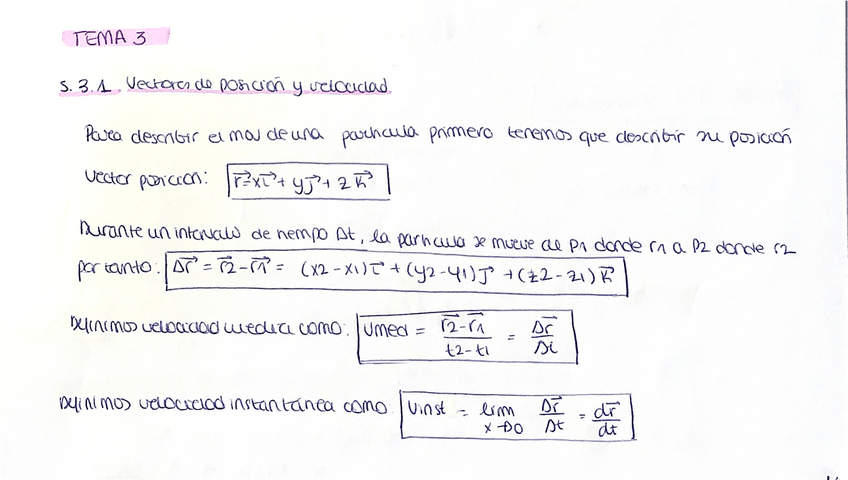 TEMA 3
S. 3.1. Vectores de posición y velocidad.
Para describir el mov de una partícula primero tenemos que describir su posición
Vector posición: r⃗ = xi⃗ + yj⃗ + zk⃗
Durante un intervalo de tiempo Δt, la partícula se mueve de P1 donde r1 a P2 donde r2
por tanto: Δr⃗ = r⃗2 - r⃗1 = (x2-x1)i⃗ + (y2-y1)j⃗ + (z2-z1)k⃗
Definimos velocidad media como: Vmed = (r⃗2-r⃗1)/(t2-t1) = Δr⃗/Δt
Definimos velocidad instantánea como Vinst = lim x→0 Δr⃗/Δt = dr⃗/dt